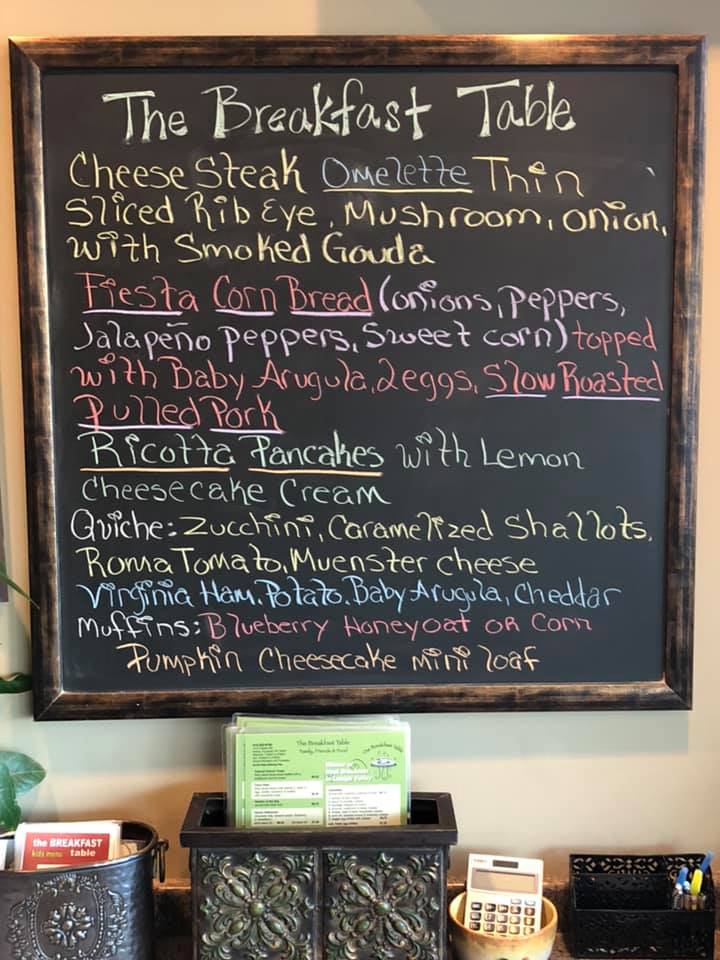 The Breakfast Table
Cheese Steak Omelette Thin
Sliced Rib Eye, Mushroom, onion,
with Smoked Gouda
Fiesta Corn Bread (onions, peppers,
Jalapeño peppers, Sweet corn) topped
with Baby Arugula, 2eggs, Slow Roasted
Pulled Pork
Ricotta Pancakes with Lemon
Cheesecake Cream
Quiche: Zucchini, Caramelized Shallots,
Roma Tomato, Muenster cheese
Virginia Ham, Potato, Baby Arugula, Cheddar
Muffins: Blueberry Honeyoat or Corn
Pumpkin Cheesecake mini loaf
The Breakfast Table
Family, Friends & Food
The Breakfast Table
the BREAKFAST
kids menu table